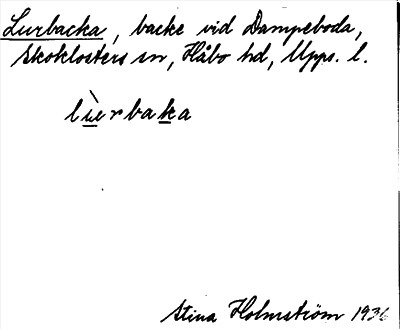 Lurbacka, backe vid Dampeboda,
Skoklosters sn, Håbo hd, Upps. l.
lùerbaka
Stina Holmström 1936